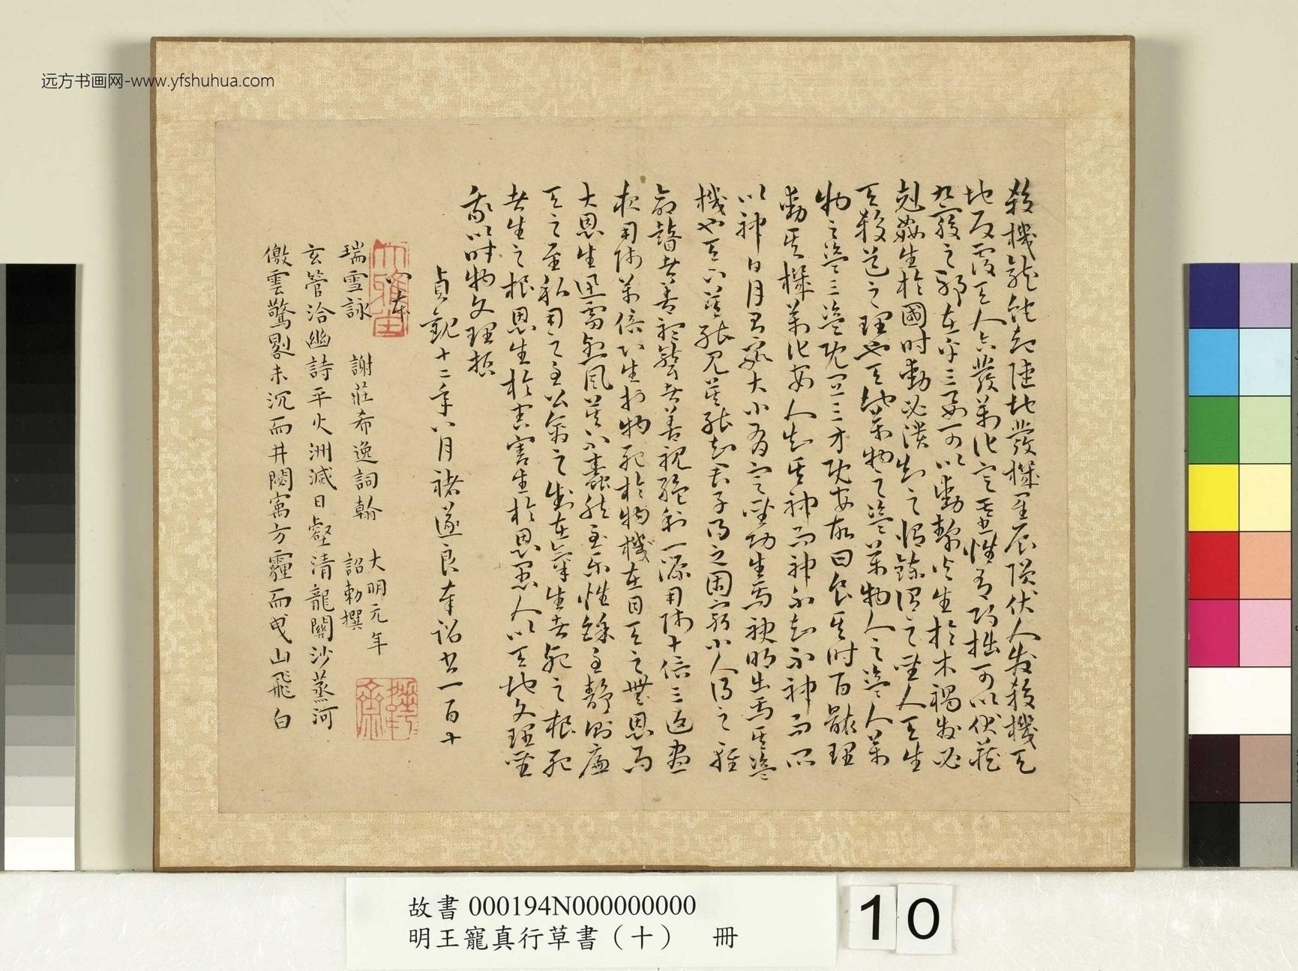 殺機龍蛇起陸地發機星辰隕伏人發殺機天
地反覆天人合發萬化定基性有巧拙可以伏藏
九竅之邪在乎三要可以動靜火生於木禍發必
剋姦生於國時動必潰知之脩鍊謂之聖人天生
天殺道之理也天地萬物之盜萬物人之盜人萬
物之盜三盜既宜三才既安故曰食其時百骸理
動其機萬化安人知其神而神不知不神而所
以神日月有數大小有定聖功生焉神明出焉其盜
機也天下莫能見莫能知君子得之固窮小人得之輕
命瞽者善聽聾者善視絕利一源用師十倍三返晝
夜用師萬倍心生於物死於物機在目天之無恩而
大恩生迅雷烈風莫不蠢然至樂性餘至靜則廉
天之至私用之至公禽之制在氣生者死之根死
者生之根恩生於害害生於恩愚人以天地文理聖
我以時物文理哲
貞觀十二年八月褚遂良奉詔書一百十
八本
瑞雪詠 謝莊希逸詞翰 大明元年
詔勅撰
玄管洽幽詩平火洲滅日壑清龍關沙蒸河
雲驚未沉而井閟寓方霾而曵山飛白
远方书画网-www.yfshuhua.com
故書 000194N000000000
明王寵真行草書（十） 冊
10